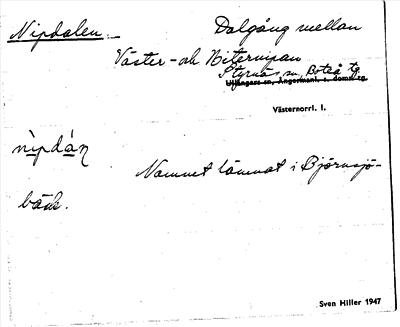 Nipdalen. Dalgång mellan
Väster- och Öster­nipan
Styrnäs sn, Boteå tg
Ullångers sn, Ångermanl. s. doms. tg.
Västernorrl. l.
nìpdán
Namnet lämnat i Björnsjö-
bäck.
Sven Hiller 1947